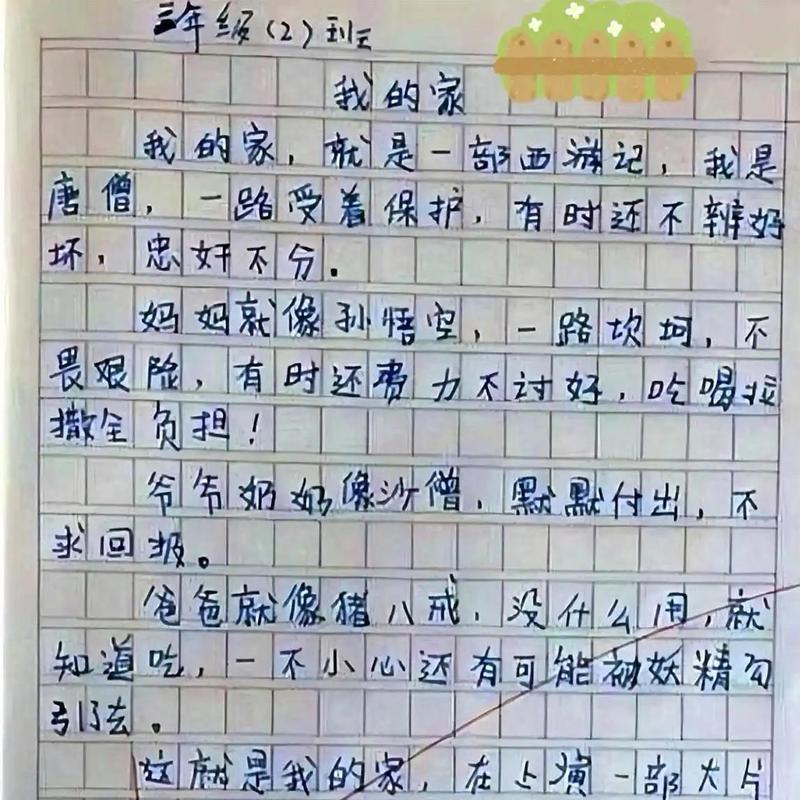 三年级(2)班
我的家
我的家，就是一部西游记，我是
唐僧，一路受着保护，有时还不辨好
坏，忠奸不分。
妈妈就像孙悟空，一路坎坷，不
畏艰险，有时还费力不讨好，吃喝拉
撒全负担！
爷爷奶奶像沙僧，默默付出，不
求回报。
爸爸就像猪八戒，没什么用，就
知道吃，一不小心还有可能被妖精勾
引了去。
这就是我的家，在上演一部大片